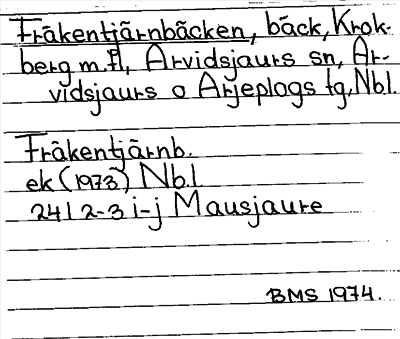 Fräkentjärnbäcken, bäck, Krok-
berg m.fl., Arvidsjaurs sn, Ar-
vidsjaurs o Arjeplogs tg. Nbl.
Fräkentjärnb.
ek (1973) Nbl
24I 2-3 i-j Mausjaure
BMS 1974.